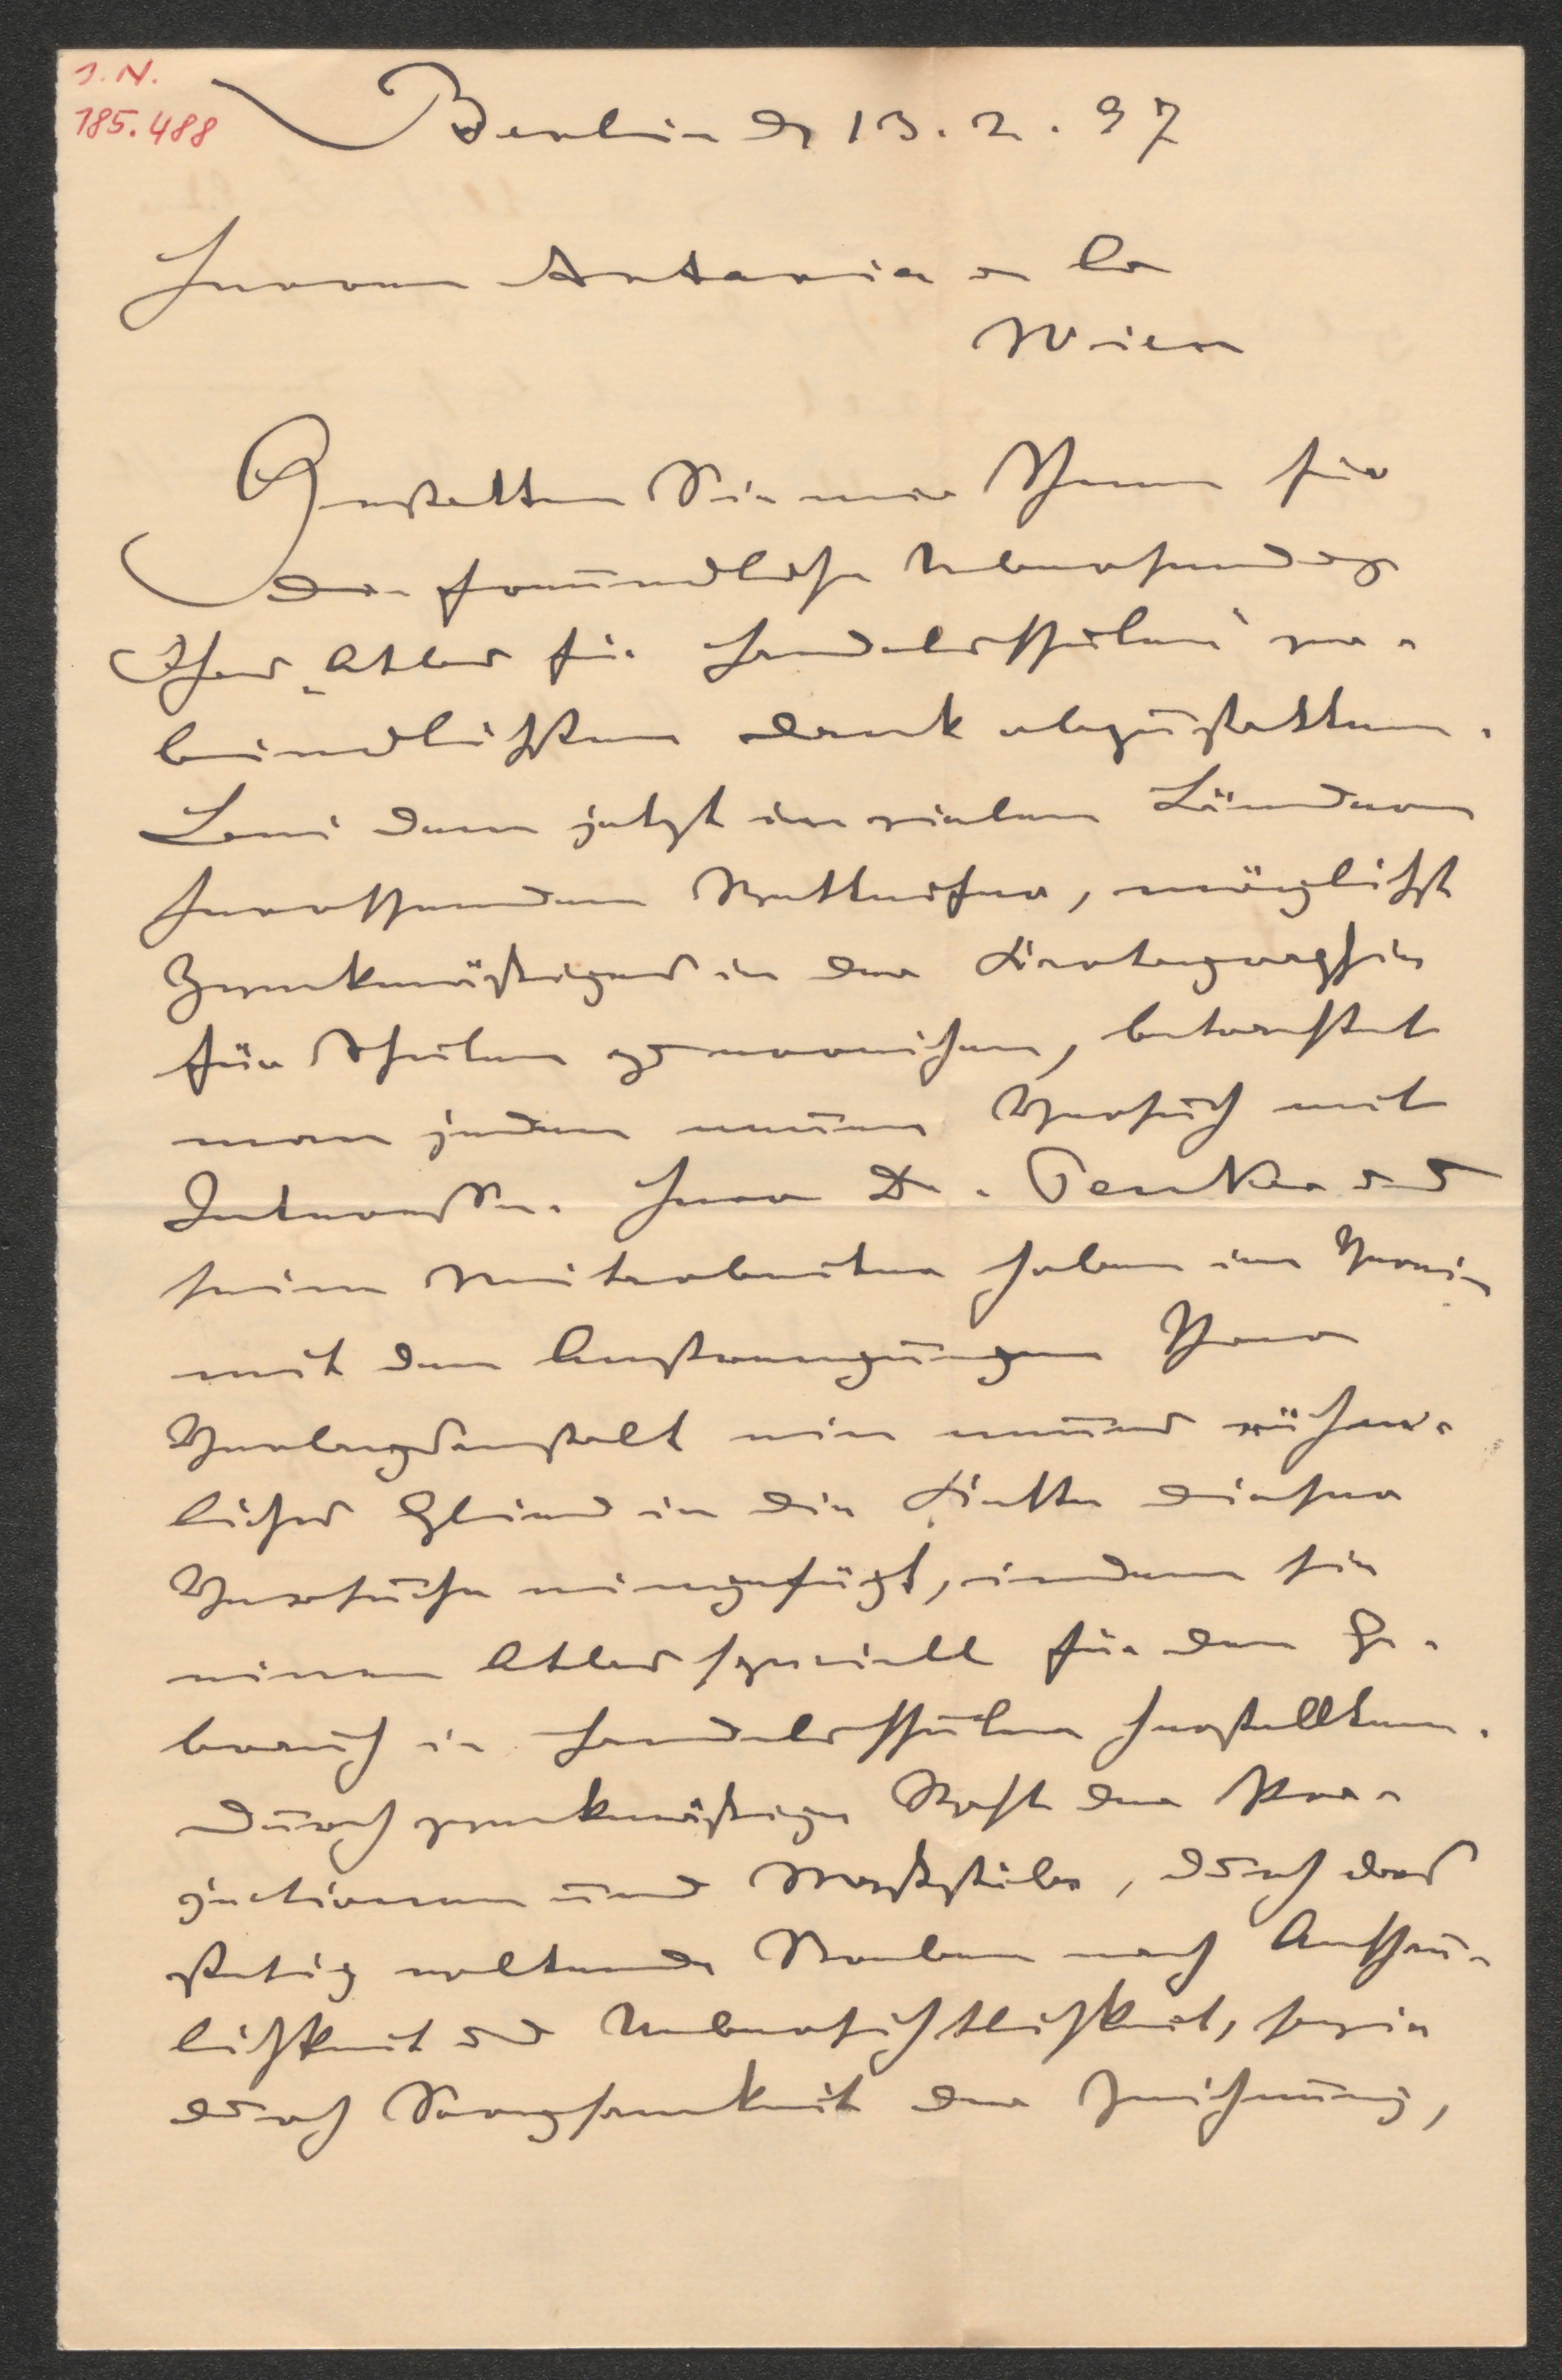 I. N.
185.488
Berlin d 13. 2. 97
Herren Artaria & Co
Wien
Gestatten Sie mir Ihnen für
die freundliche Uebersendung
Ihres „Atlas für Handelsschulen" ver-
bindlichsten Dank abzustatten.
Bei dem jetzt in vielen Ländern
herrschenden Wetteifer, möglichst
Zweckmäßiges in der Kartographie
für Schulen zu erreichen, betrachtet
man jeden neuen Versuch mit
Interesse. Herr Dr. Peucker und
seine Mitarbeiter haben im Verein
mit den Anstrengungen Ihrer
Verlagsanstalt ein neues rühm-
liches Glied in die Kette dieser
Versuche eingefügt, indem sie
einen Atlas speciell für den Ge-
brauch in Handelsschulen herstellten.
Durch zweckmäßige Wahl der Pro-
jectionen und Maßstäbe, durch das
stetig waltende Streben nach Anschau-
lichkeit und Uebersichtlichkeit, sowie
durch Sorgsamkeit der Zeichnung,